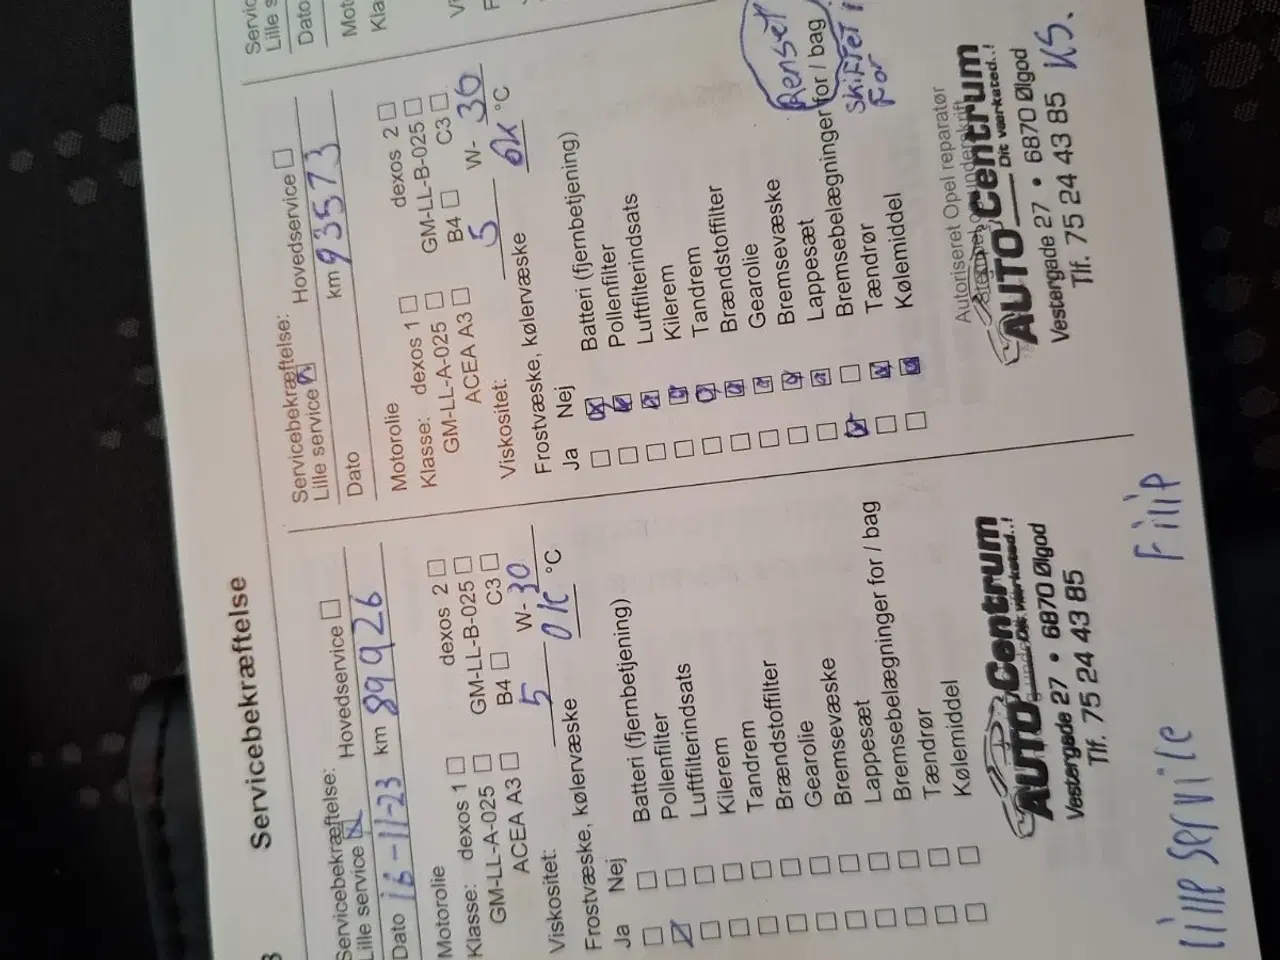 Servicebekræftelse
Servicebekræftelse:
Lille service Hovedservice
Dato 16-11-23 km 89926
Motorolie
Klasse: dexos 1 dexos 2
GM-LL-A-025 GM-LL-B-025
ACEA A3 B4 C3
Viskositet: 5 W-30
Frostvæske, kølervæske OK °C
Ja Nej
Batteri (fjernbetjening)
Pollenfilter
Luftfilterindsats
Kilerem
Tandrem
Brændstoffilter
Gearolie
Bremsevæske
Lappesæt
Bremsebelægninger for / bag
Tændrør
Kølemiddel
AUTO Centrum
Dit værksted..!
Vestergade 27 • 6870 Ølgod
Tlf. 75 24 43 85
Lille service Filip
Servicebekræftelse:
Lille service Hovedservice
Dato km 93573
Motorolie
Klasse: dexos 1 dexos 2
GM-LL-A-025 GM-LL-B-025
ACEA A3 B4 C3
Viskositet: 5 W-30
Frostvæske, kølervæske OK °C
Ja Nej
Batteri (fjernbetjening)
Pollenfilter
Luftfilterindsats
Kilerem
Tandrem
Brændstoffilter
Gearolie
Bremsevæske
Lappesæt
Bremsebelægninger for / bag
Renset
Skiftet i
For
Tændrør
Kølemiddel
Autoriseret Opel reparatør
AUTO Centrum
Dit værksted..!
Vestergade 27 • 6870 Ølgod
Tlf. 75 24 43 85 KS.
Servic
Lille s
Dato
Moto
Kla